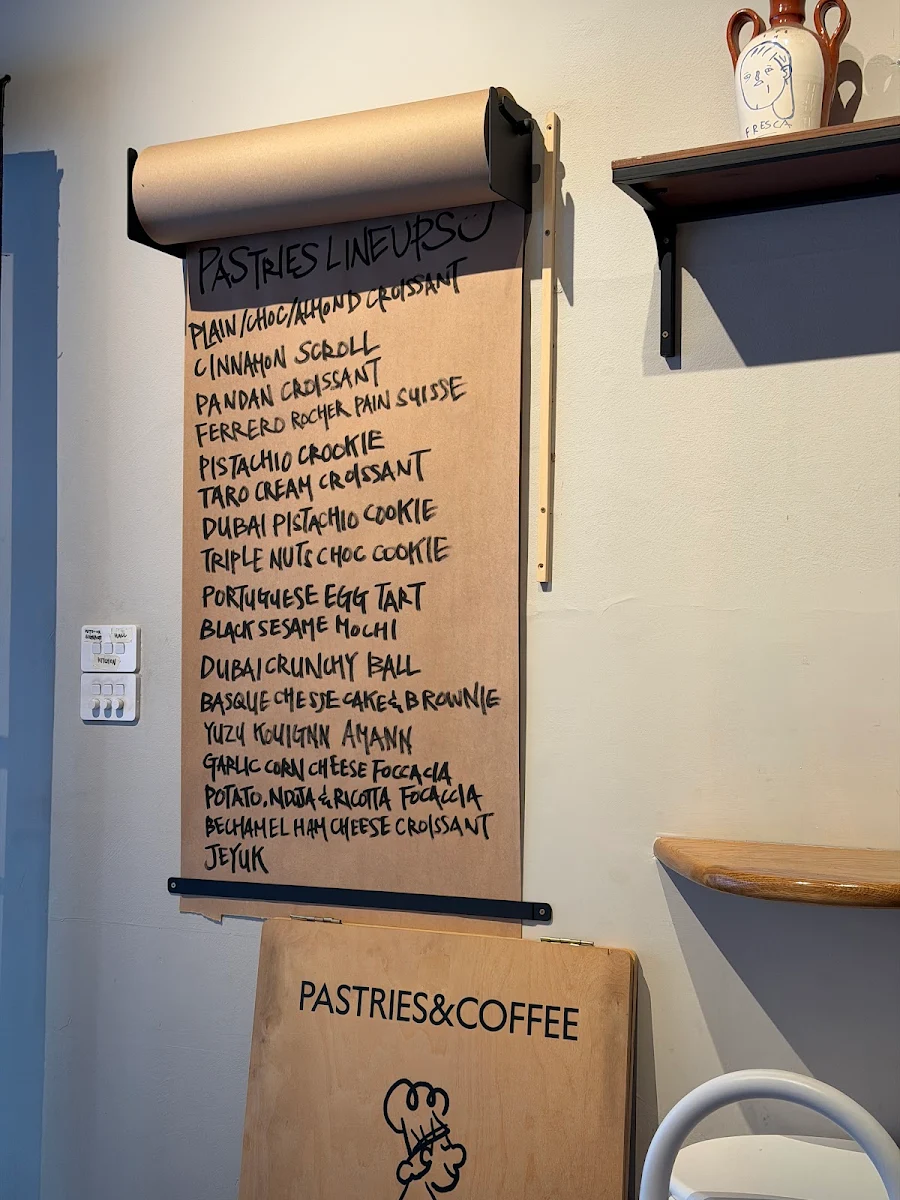 FRESCA
PASTRIES LINEUPS
PLAIN/CHOC/ALMOND CROISSANT
CINNAMON SCROLL
PANDAN CROISSANT
FERRERO ROCHER PAIN SUISSE
PISTACHIO CROOKIE
TARO CREAM CROISSANT
DUBAI PISTACHIO COOKIE
TRIPLE NUTS CHOC COOKIE
PORTUGUESE EGG TART
BLACK SESAME MOCHI
DUBAI CRUNCHY BALL
BASQUE CHESSE CAKE & BROWNIE
YUZU KOUIGNN AMANN
GARLIC CORN CHEESE FOCCACIA
POTATO, NDUJA & RICOTTA FOCACCIA
BECHAMEL HAM CHEESE CROISSANT
JEYUK
HALL
PASTRIES&COFFEE